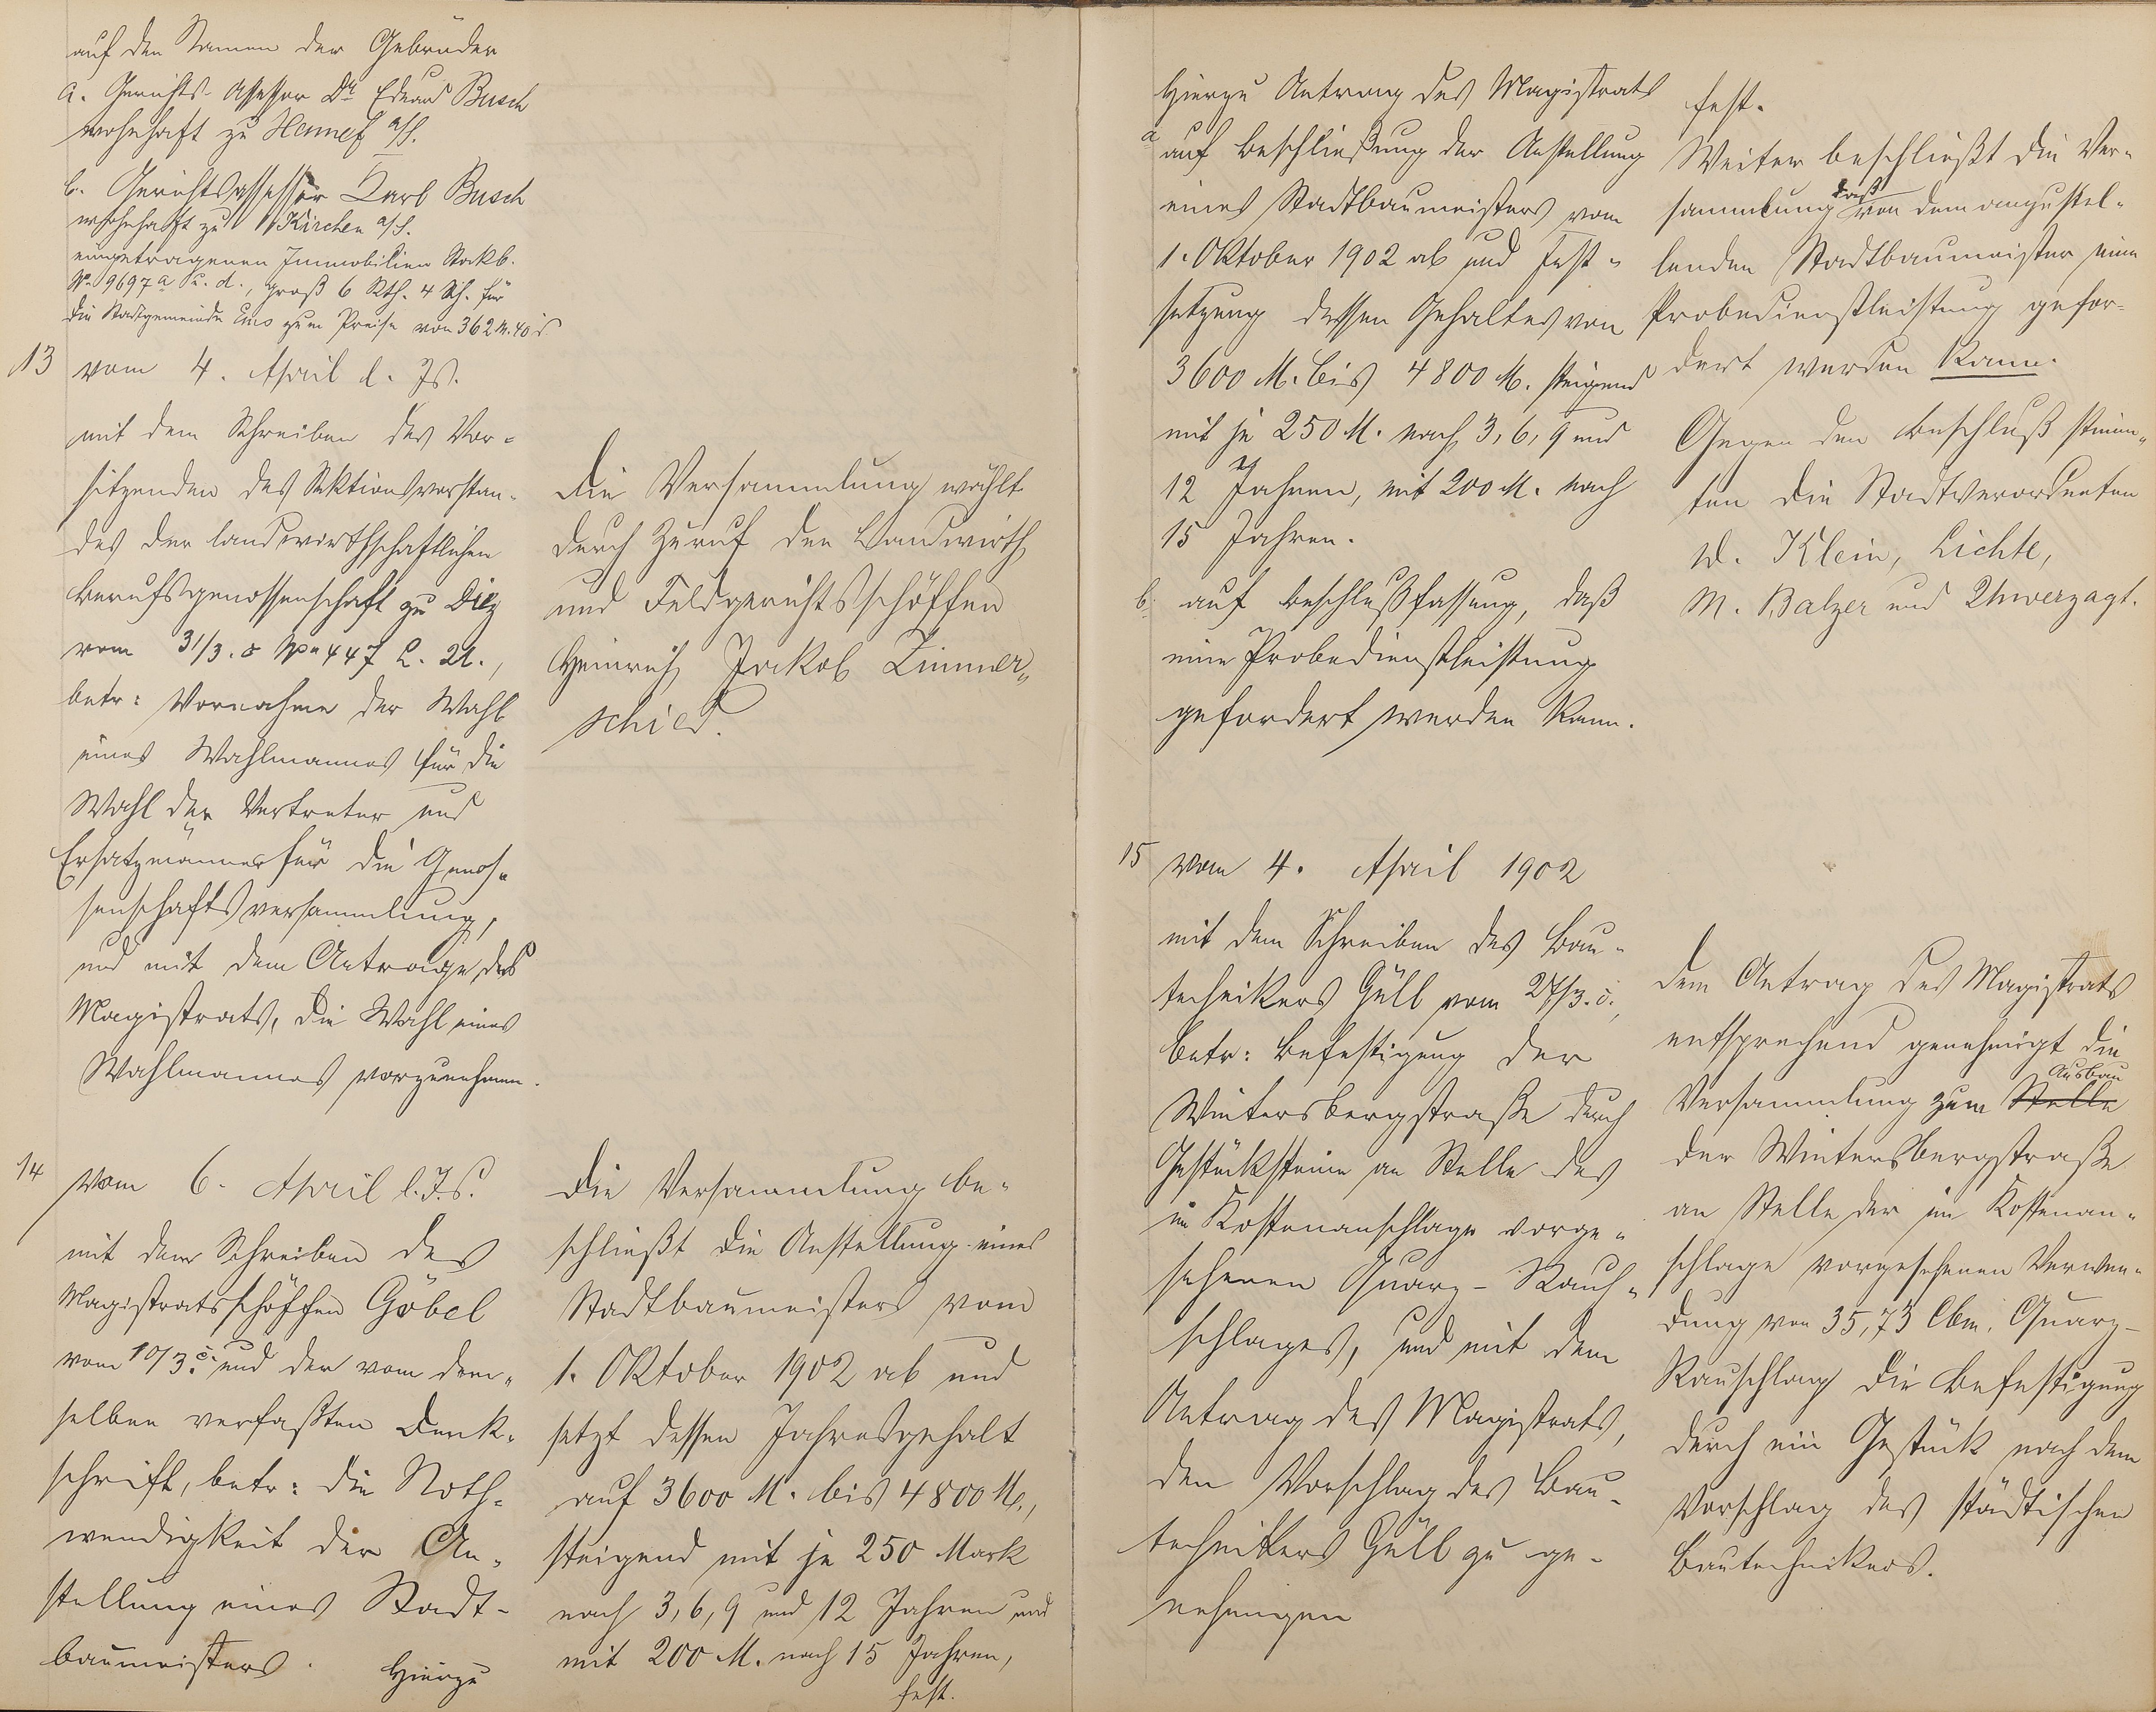 auf den Namen der Gebrüder
a. Gerichts-Assessor Dr Eduard Busch
wohnhaft zu Hennef a/S.
b. Gerichtsassessor Karl Busch
wohnhaft zu Kirchen a/S.
eingetragenen Immobilien Stockb.
No 9697 a u. d., groß 6 Rth. 4 Sch. für
die Stadtgemeinde Ems zum Preise von 362 M. 40 d
13 vom 4. April l. Js.
mit dem Schreiben des Vor-
sitzenden des Sektionsvorstan-
des der landwirthschaftlichen
Berufsgenossenschaft zu Diez
vom 31/3. c No 447 L. A.,
betr: Vornahme der Wahl
eines Wahlmannes für die
Wahl der Vertreter und
Ersatzmänner für die Genos-
senschaftsversammlung,
und mit dem Antrage des
Magistrats, die Wahl eines
Wahlmannes vorzunehmen.
Die Versammlung wählt
durch Zuruf den Landwirth
und Feldgerichtsschöffen
Heinrich Jakob Zimmer-
schied.
14 vom 6. April l. Js.
mit dem Schreiben des
Magistratsschöffen Göbel
vom 10/3. c. und der vom dem-
selben verfaßten Denk-
schrift, betr: die Noth-
wendigkeit der An-
stellung eines Stadt-
baumeisters.
Hierzu
Die Versammlung be-
schließt die Anstellung eines
Stadtbaumeisters vom
1. Oktober 1902 ab und
setzt dessen Jahresgehalt
auf 3600 M. bis 4800 M.,
steigend mit je 250 Mark
nach 3, 6, 9 und 12 Jahren und
mit 200 M. nach 15 Jahren,
fest.
Hierzu Antrag des Magistrats
a auf Beschließung der Anstellung
eines Stadtbaumeisters vom
1. Oktober 1902 ab und Fest-
setzung dessen Gehaltes von
3600 M. bis 4800 M. steigend
mit je 250 M. nach 3, 6, 9 und
12 Jahren, mit 200 M. nach
15 Jahren.
b. auf Beschlußfassung, daß
eine Probedienstleistung
gefordert werden kann.
fest.
Weiter beschließt die Ver-
sammlung daß von dem anzustel-
lenden Stadtbaumeister eine
Probedienstleistung gefor-
dert werden kann.
Gegen den Beschluß stimm-
ten die Stadtverordneten
W. Klein, Lichte,
M. Balzer und Unverzagt.
15 vom 4. April 1902
mit dem Schreiben des Bau-
technikers Güll vom 27/3. c.,
betr: Befestigung der
Wintersbergstraße durch
Gestücksteine an Stelle des
im Kostenanschlage vorge-
sehenen Quarz-Rauh-
schlages, und mit dem
Antrag des Magistrats,
den Vorschlag des Bau-
technikers Güll zu ge-
nehmigen
Dem Antrag des Magistrats
entsprechend genehmigt die
Versammlung zum Stelle Ausbau
der Wintersbergstraße
an Stelle der im Kostenan-
schlage vorgesehenen Verwen-
dung von 35,73 Cbm. Quarz-
Rauschlag die Befestigung
durch ein Gestück nach dem
Vorschlag des städtischen
Bautechnikers.